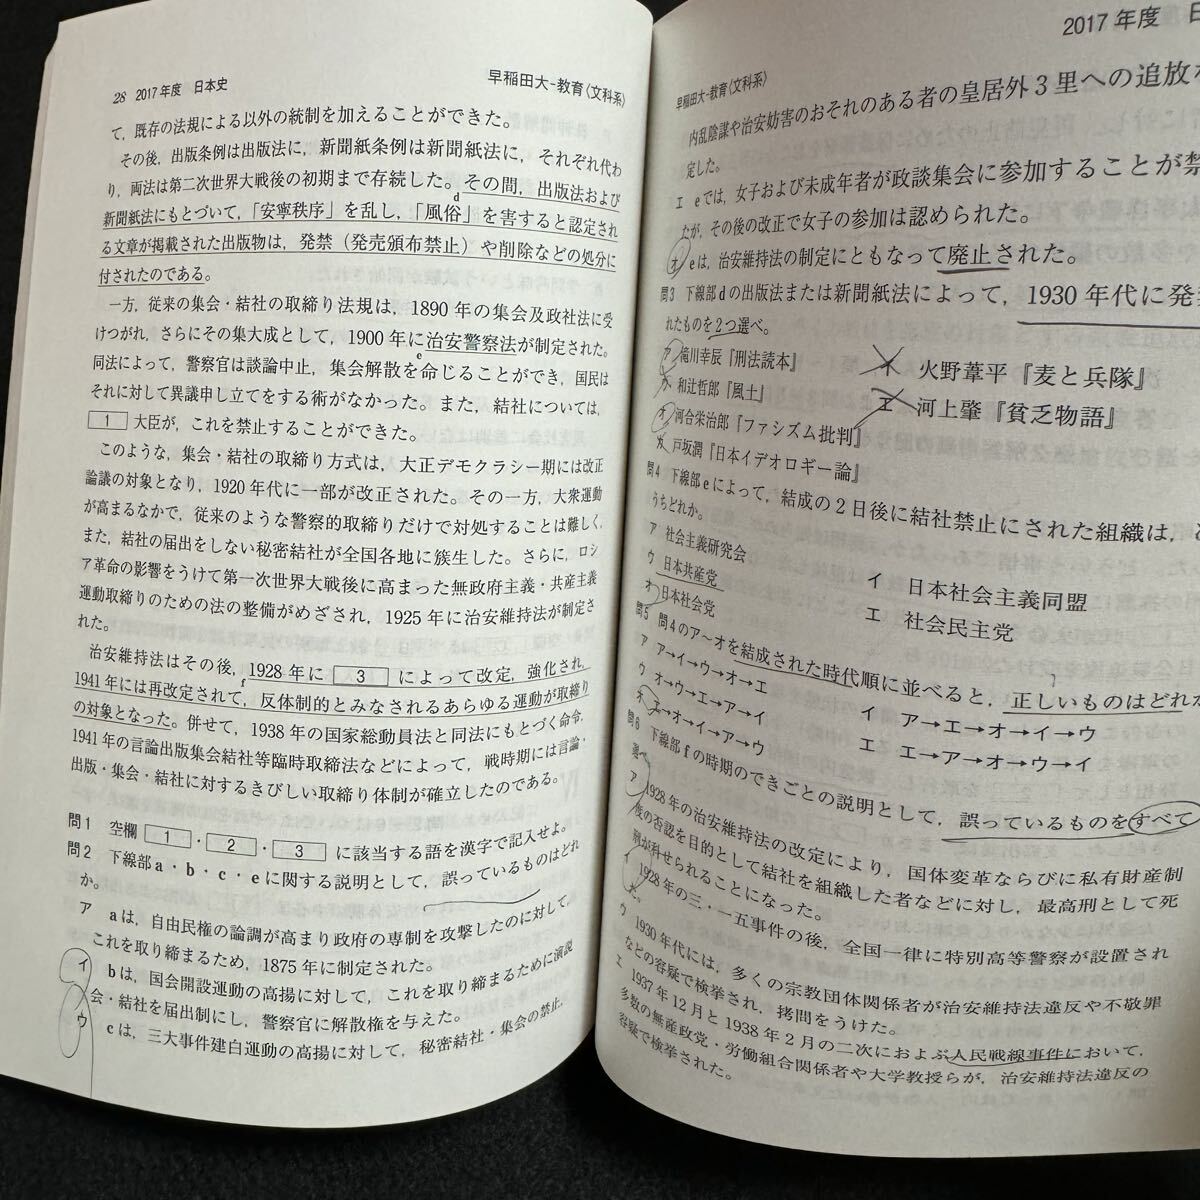 28 2017年度 日本史
早稲田大-教育〈文科系〉
て,既存の法規による以外の統制を加えることができた。
その後,出版条例は出版法に,新聞紙条例は新聞紙法に,それぞれ代わ
り,両法は第二次世界大戦後の初期まで存続した。その間,出版法および
d
新聞紙法にもとづいて,「安寧秩序」を乱し,「風俗」を害すると認定され
る文章が掲載された出版物は,発禁(発売頒布禁止)や削除などの処分に
付されたのである。
一方,従来の集会・結社の取締り法規は,1890年の集会及政社法に受
けつがれ,さらにその集大成として,1900年に治安警察法が制定された。
e
同法によって,警察官は談論中止,集会解散を命じることができ,国民は
それに対して異議申し立てをする術がなかった。また,結社については,
1 大臣が,これを禁止することができた。
このような,集会・結社の取締り方式は,大正デモクラシー期には改正
論議の対象となり,1920年代に一部が改正された。その一方,大衆運動
が高まるなかで,従来のような警察的取締りだけで対処することは難しく,
また,結社の届出をしない秘密結社が全国各地に簇生した。さらに,ロシ
ア革命の影響をうけて第一次世界大戦後に高まった無政府主義・共産主義
運動取締りのための法の整備がめざされ,1925年に治安維持法が制定さ
れた。
治安維持法はその後,1928年に 3 によって改定,強化され,
f
1941年には再改定されて,反体制的とみなされるあらゆる運動が取締り
の対象となった。併せて,1938年の国家総動員法と同法にもとづく命令,
1941年の言論出版集会結社等臨時取締法などによって,戦時期には言論・
出版・集会・結社に対するきびしい取締り体制が確立したのである。
問1 空欄 1 ・ 2 ・ 3 に該当する語を漢字で記入せよ。
問2 下線部a・b・c・eに関する説明として,誤っているものはどれ
か。
ア aは,自由民権の論調が高まり政府の専制を攻撃したのに対して,
これを取り締まるため,1875年に制定された。
イ bは,国会開設運動の高揚に対して,これを取り締まるために演説
会・結社を届出制にし,警察官に解散権を与えた。
ウ cは,三大事件建白運動の高揚に対して,秘密結社・集会の禁止,
早稲田大-教育〈文科系〉
2017年度 日
内乱陰謀や治安妨害のおそれのある者の皇居外3里への追放
定した。
エ eでは,女子および未成年者が政談集会に参加することが禁
たが,その後の改正で女子の参加は認められた。
オ eは,治安維持法の制定にともなって廃止された。
問3 下線部dの出版法または新聞紙法によって,1930年代に発
れたものを2つ選べ。
ア 滝川幸辰『刑法読本』
イ 火野葦平『麦と兵隊』
ウ 和辻哲郎『風土』
エ 河上肇『貧乏物語』
オ 河合栄治郎『ファシズム批判』
カ 戸坂潤『日本イデオロギー論』
問4 下線部eによって,結成の2日後に結社禁止にされた組織は,
うちどれか。
ア 社会主義研究会
イ 日本社会主義同盟
ウ 日本共産党
エ 社会民主党
オ 日本社会党
問5 問4のア〜オを結成された時代順に並べると,正しいものはどれ
ア ア→イ→ウ→オ→エ
イ ア→エ→オ→イ→ウ
ウ オ→ウ→エ→ア→イ
エ エ→ア→オ→ウ→イ
オ エ→オ→イ→ア→ウ
問6 下線部fの時期のできごとの説明として,誤っているものをすべて
選べ。
ア 1928年の治安維持法の改定により,国体変革ならびに私有財産制
度の否認を目的として結社を組織した者などに対し,最高刑として死
刑が科せられることになった。
イ 1928年の三・一五事件の後,全国一律に特別高等警察が設置され
た。
ウ 1930年代には,多くの宗教団体関係者が治安維持法違反や不敬罪
などの容疑で検挙され,拷問をうけた。
エ 1937年12月と1938年2月の二次におよぶ人民戦線事件において,
多数の無産政党・労働組合関係者や大学教授らが,治安維持法違反の
容疑で検挙された。